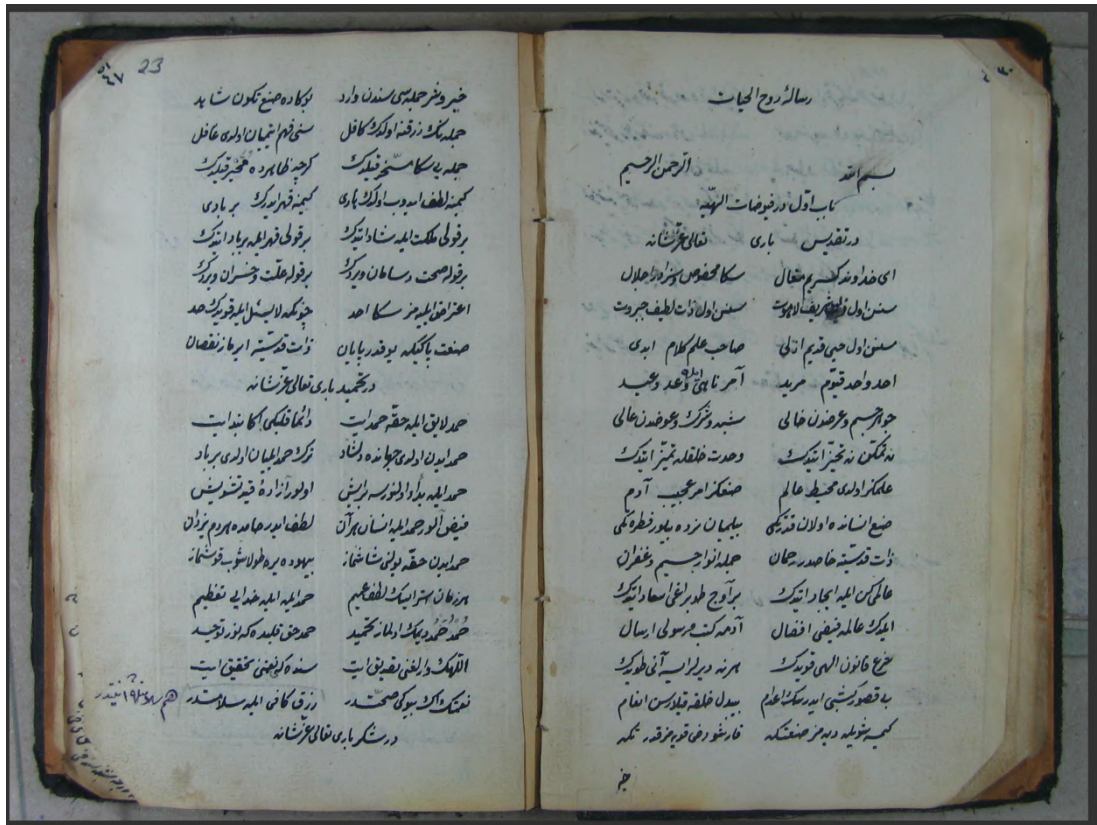 رسالهٔ روح الحیات
بسم الله الرحمن الرحیم
باب اول در فیوضات الهیّه
در تقدیس باری تعالی عزّشانه
ای خداوند کریم متعال سکا مخصوص وسزادر اجلال
سنسن اول لاهوت سنسن اول ذات لطیف جبروت
سنسن اول حیی قدیم ازلی صاحب علم کلام ابدی
احد واحد قیوّم مرید آمر ناهی وعد وعید
جوهر جسم وعرضدن خالی شبه وشرک وعوضدن عالی
نه تمکّن نه تحیّز ایتدک وحدت خلقله تمیّز ایتدک
علمکز اولدی محیط عالم صنعکز امر عجیب آدم
صنع انسانده اولان قدرتکی بیلیمان نرده بیلور فطرتکمی
ذات قدسیّته خاصدر رحمان جمله انوار جسیم وغفران
عالمی کن ایله ایجاد ایتدک بر آوج طوپراغی اسعاد ایتدک
ایلدک عالمه فیضی افضال آدمه کتب ورسولی ارسال
شرع قانون الهی قویدک هر نه دیرلرایسه آنی طویدک
بیدل خلقه قیلارسن انعام
کیمسه شویله دیه مز صنعتکه قارشو رخی قویه مز قدرتکه
خیر
خیر وشر جمله سی سندن وارد بوکاده صنع تکون شاهد
جمله نک رزقنه اولدک کافل سنی فهم ایتمیان اولدی غافل
جمله یی سکا مسخّر قیلدک کرچه ظاهرده مخیّر قیلدک
کیمنه لطف ایدوب اولدک یاری کیمنه قهر ایدرک بر بادی
بر قولی ملکت ایله شاد ایتدک بر قولی قهر ایله برباد ایتدک
بر قوله صحت وسامان ویردک بر قوله علّت وخسران ویردک
اعتراض ایلیه مز سکا احد چونکه لایسئل ایله قویدک حد
صنعت پاککه یوقدر پایان ذات قدسیّته ایرماز نقصان
در تحمید باری تعالی عزّشانه
حمد لایق ایله حقّه حمد ایت دائما قلبکی اکا بند ایت
حمد ایدن اولدی جهانده دلشاد ترک حمد ایلیان اولدی برباد
حمد ایله بدأ اولنورسه هر ایش اولور آزادهٔ قید تشویش
فیض آلور حمد ایله انسان هر آن لطف ایدر حامده هردم یزدان
حمد ایدن حقّه یولنی شاشماز بیهوده یره طولاشوب قوشماز
هر زمان استرایسک لطف عمیم حمد ایله ایله خدایی تعظیم
حمد حمد دیمک اولماز تحمید حمد حق قلبده که نور توحید
اللهک وارلغنی تصدیق ایت سنده کی نعمتی تحقیق ایت
رزق کافی ایله سلامتدر
در شکر باری تعالی عزّشانه
23